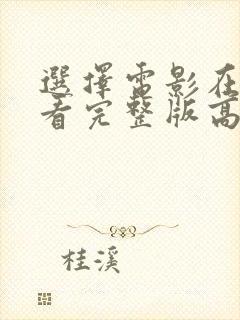 選擇雷影在
看完整版高
桂溪